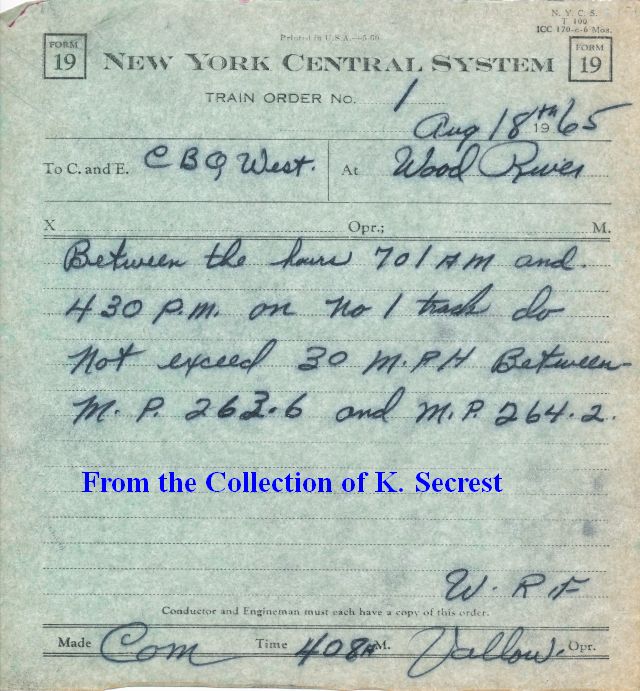 N. Y. C. S.
T 100
ICC 170-c-6 Mos.
Printed in U.S.A.—5-60
FORM 19
NEW YORK CENTRAL SYSTEM
FORM 19
TRAIN ORDER No. 1
Aug 18th 1965
To C. and E. CBQ West. At Wood River
X Opr.; M.
Between the hours 701 AM and
430 P.M. on No 1 track do
Not exceed 30 M.P.H Between
M. P. 263.6 and M.P. 264.2.
From the Collection of K. Secrest
W. R. F
Conductor and Engineman must each have a copy of this order.
Made Com Time 408 A M. Vallow. Opr.